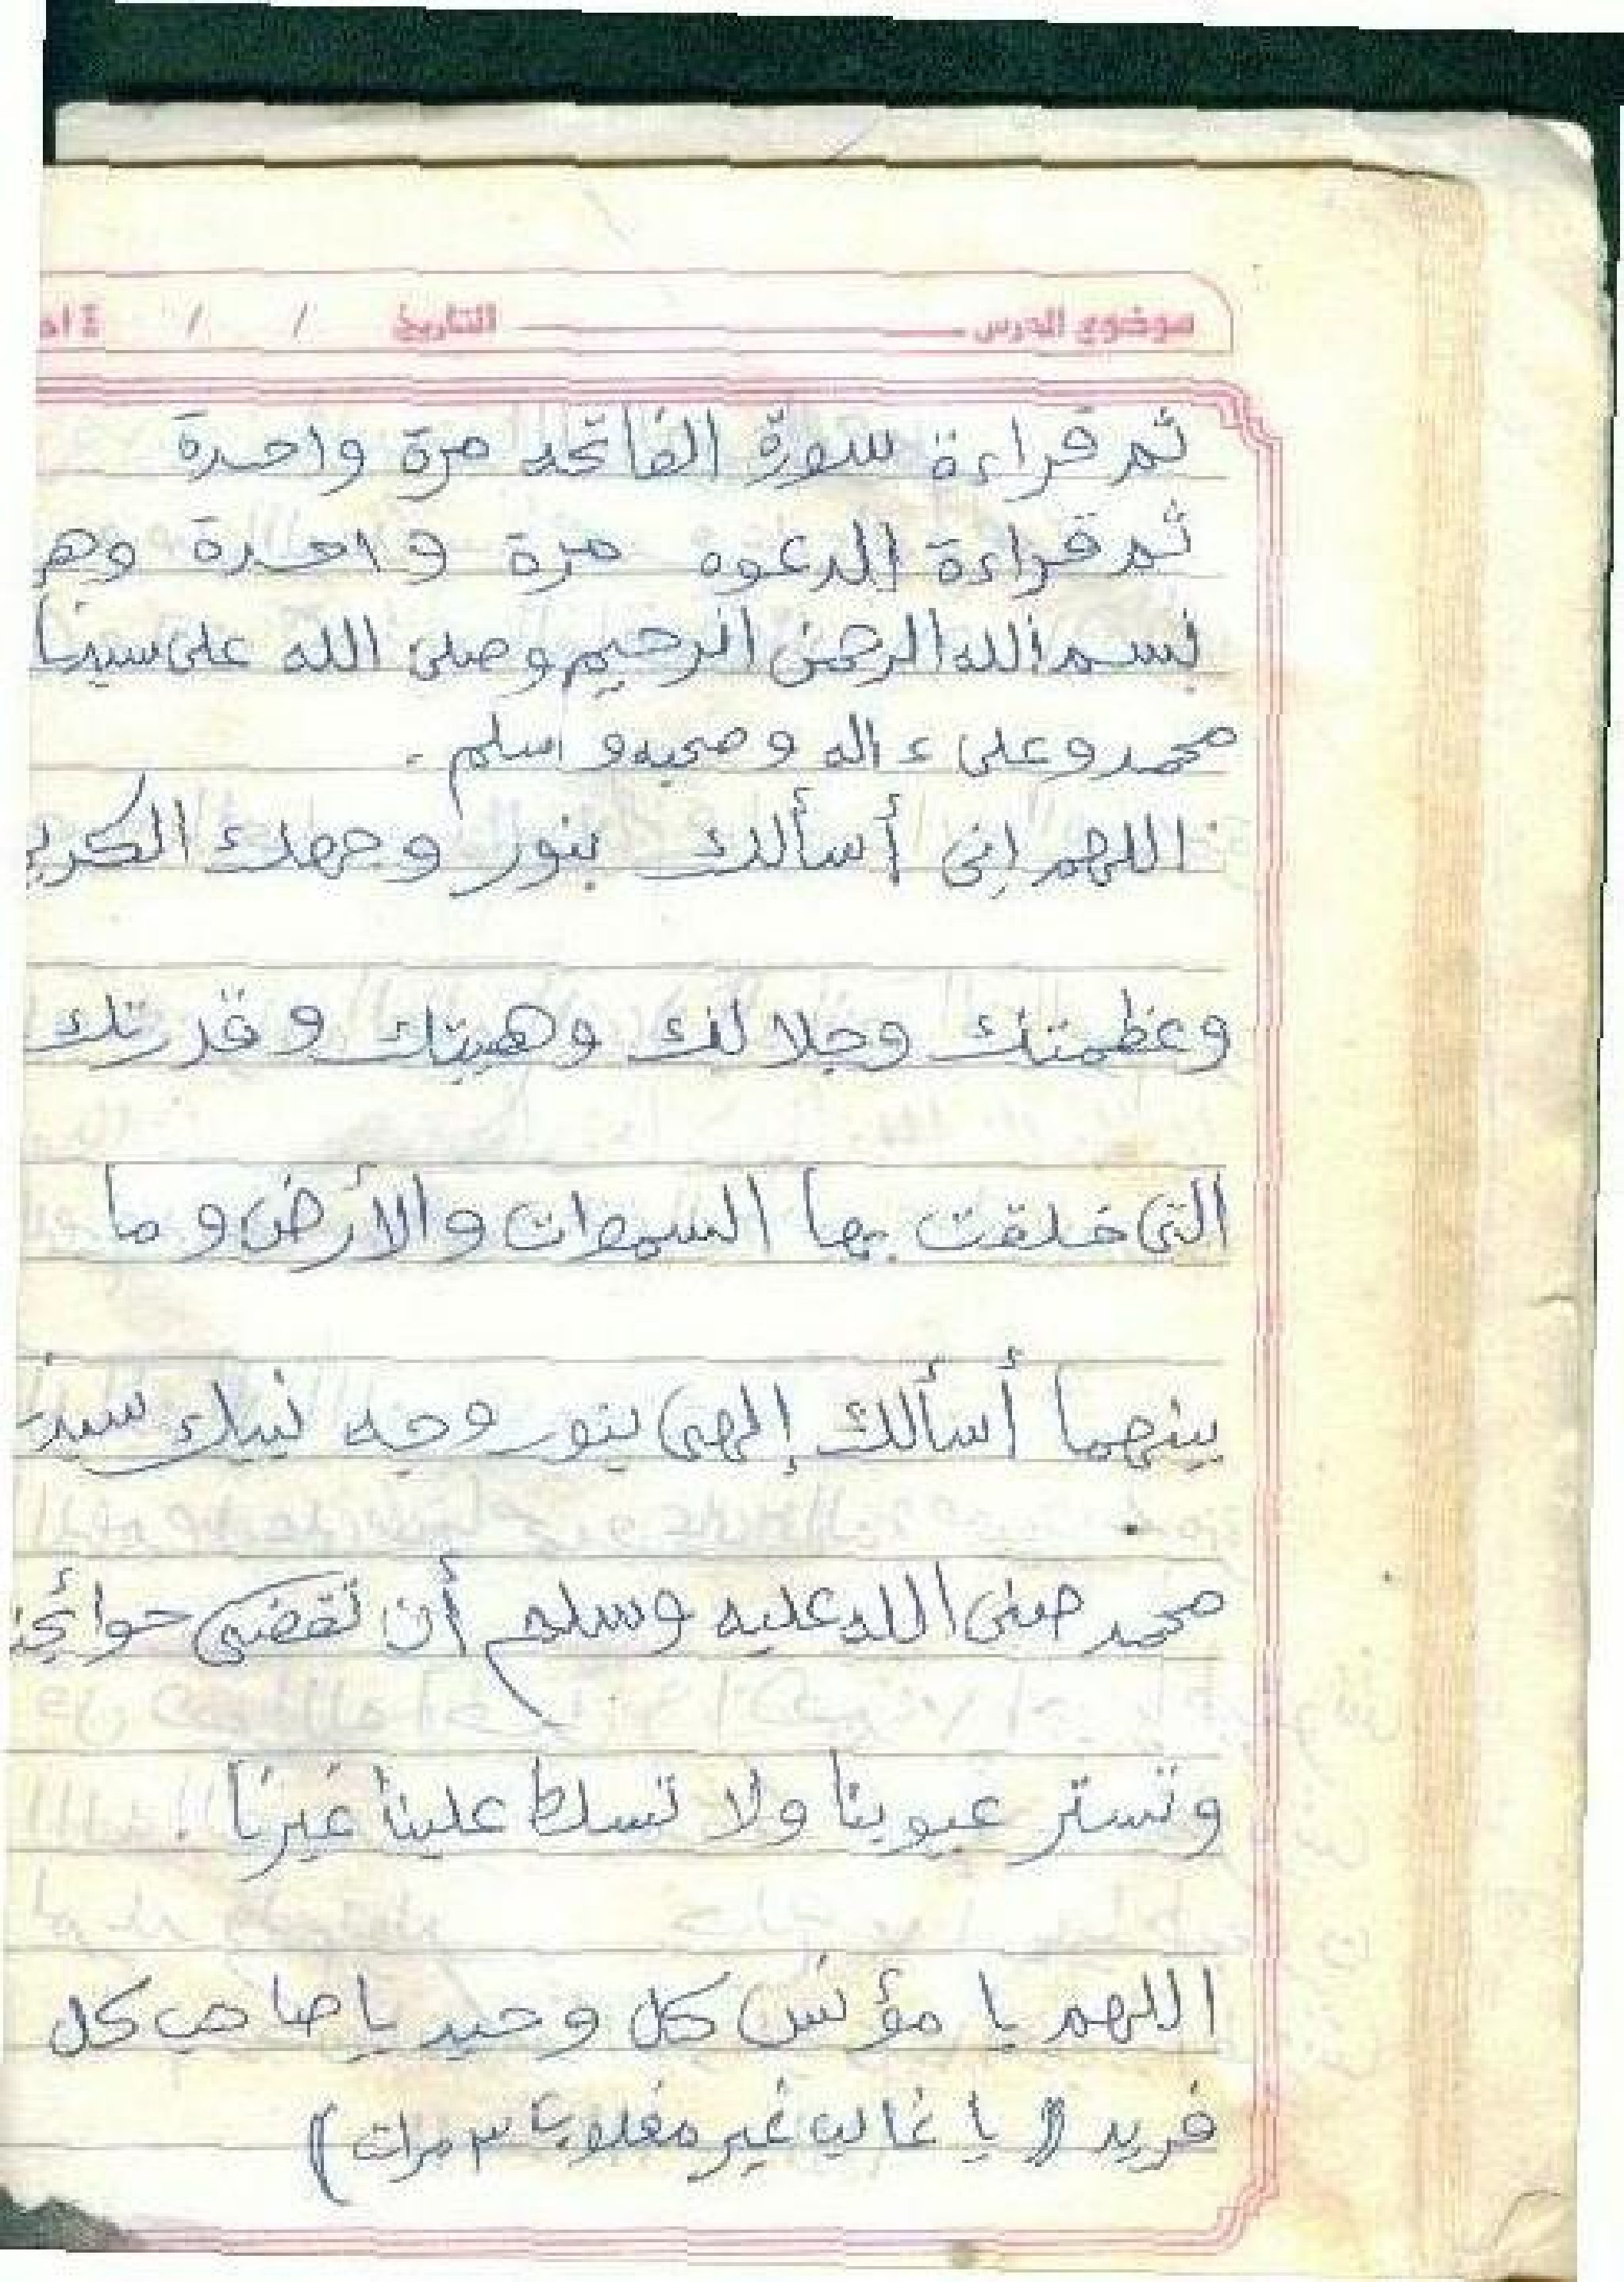 موضوع الدرس التاريخ / /
ثم قراءة سورة الفاتحه مرة واحدة
ثم قراءة الدعوه مرة واحدة وهى
بسم الله الرحمن الرحيم وصلى الله على سيدنا
محمد وعلى ءاله وصحبه وسلم .
اللهم إنى أسألك بنور وجهك الكريم
وعظمتك وجلالك وهيبتك وقدرتك
التى خلقت بها السموات والأرض وما
بينهما أسألك إلهى بنور وجه نبيك سيد
محمد صلى الله عليه وسلم أن تقضى حوائجنا
وتستر عيوبنا ولا تسلط علينا غيرنا
اللهم يا مؤنس كل وحيد يا صاحب كل
فريد (( يا غالب غير مغلوب ٣ مرات )